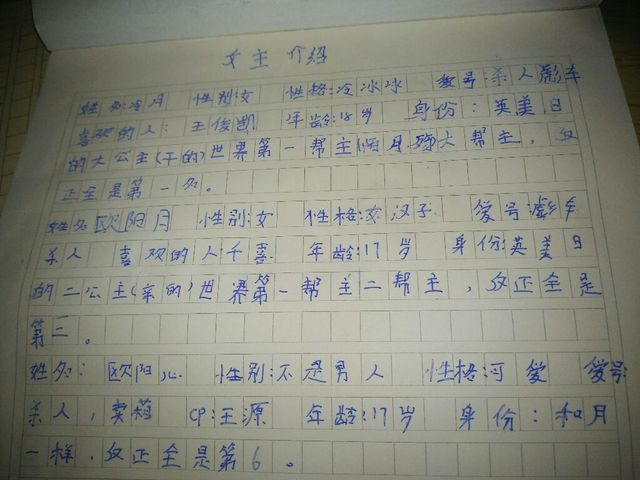 女主介绍
姓名:冷月 性别:女 性格:冷冰冰 爱号:杀人彪车
喜欢的人:王俊凯 年龄:18岁 身份:英美日
的大公主(干的)世界第一帮主 月 大帮主,反
正全是第一名。
姓名欧阳月 性别:女 性格:女汉子 爱号:彪车
杀人 喜欢的人:千喜 年龄:17岁 身份:英美日
的二公主(亲的)世界第一帮主二帮主,反正全是
第三。
姓名:欧阳心 性别:不是男人 性格:可爱 爱号:
杀人,卖萌 CP:王源 年龄:17岁 身份:和月
一样.反正全是第6。